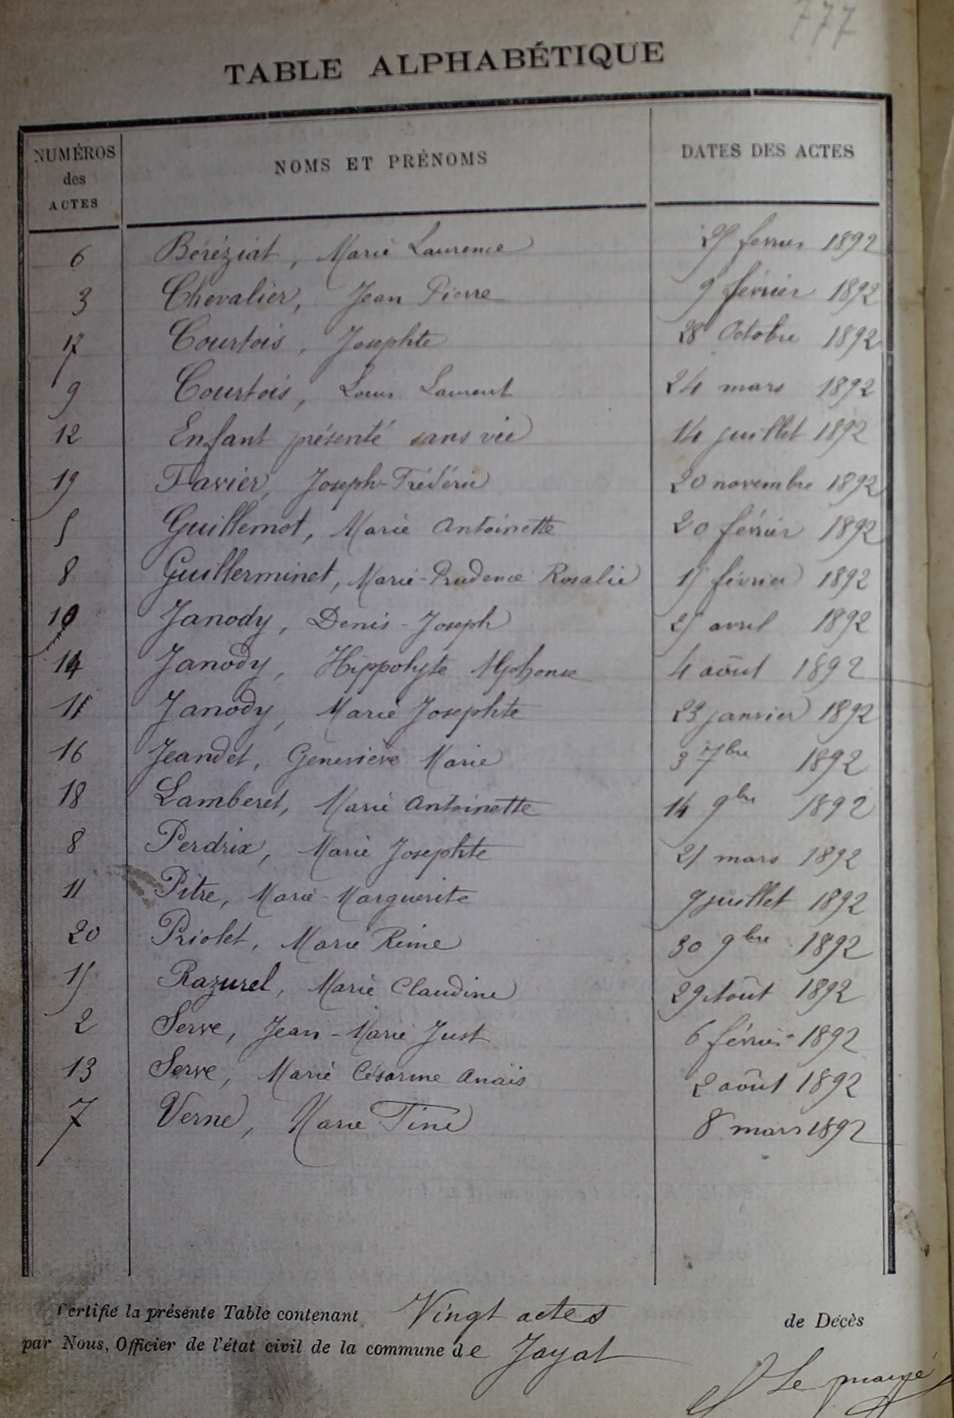 777
TABLE ALPHABÉTIQUE
NUMÉROS des ACTES NOMS ET PRÉNOMS DATES DES ACTES
6 Béréziat, Marie Laurence 25 fevrier 1892
3 Chevalier, Jean Pierre 9 février 1892
17 Courtois, Josephte 28 Octobre 1892
9 Courtois, Louis Laurent 24 mars 1892
12 Enfant présenté sans vie 14 juillet 1892
19 Favier, Joseph-Frédéric 20 novembre 1892
5 Guillemot, Marie Antoinette 20 février 1892
Guillerminet, Marie-Prudence Rosalie février 1892
10 Janody, Denis-Joseph avril 1892
14 Janody, Hippolyte Alphonse 4 août 1892
Janody, Marie Josephte 23 janvier 1892
16 Jeandet, Geneviève Marie 3 7bre 1892
18 Lamberet, Marie Antoinette 14 9bre 1892
8 Perdrix, Marie Josephte 21 mars 1892
11 Pitre, Marie-Marguerite 9 juillet 1892
20 Priolet, Marie Reine 30 9bre 1892
15 Razurel, Marie Claudine 29 Août 1892
2 Serve, Jean-Marie Just 6 février 1892
13 Serve, Marie Césarine Anaïs 2 août 1892
7 Verne, Marie Fine 8 mars 1892
Certifié la présente Table contenant Vingt actes de Décès
par Nous, Officier de l'état civil de la commune de Jayat
Le maire